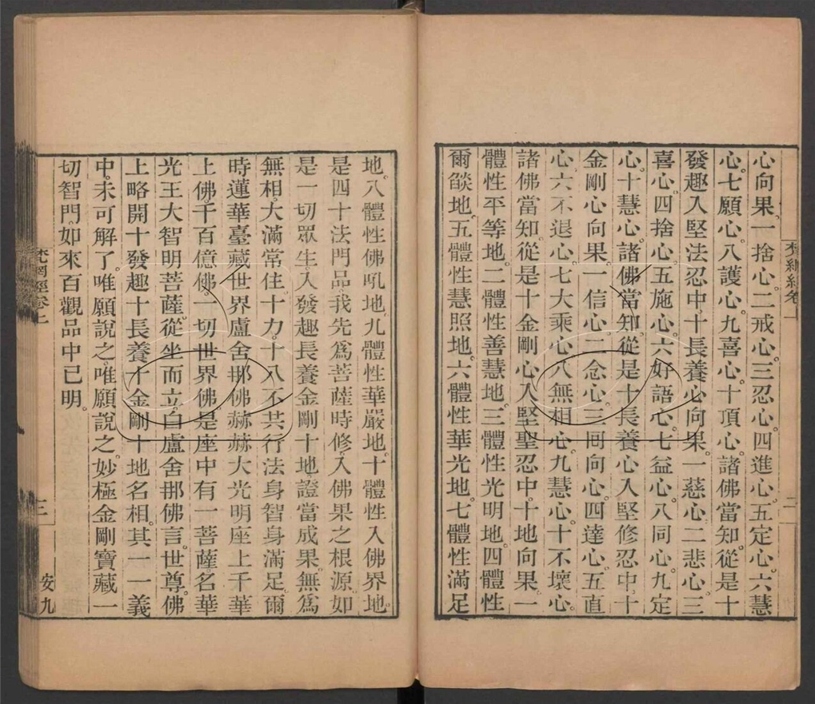 心向果。一捨心。二戒心。三忍心。四進心。五定心。六慧
心。七願心。八護心。九喜心。十頂心。諸佛當知。從是十
發趣入堅法忍中。十長養心向果。一慈心。二悲心。三
喜心。四捨心。五施心。六好語心。七益心。八同心。九定
心。十慧心。諸佛當知。從是十長養心入堅修忍中。十
金剛心向果。一信心。二念心。三回向心。四達心。五直
心。六不退心。七大乘心。八無相心。九慧心。十不壞心。
諸佛當知。從是十金剛心入堅聖忍中。十地向果。一
體性平等地。二體性善慧地。三體性光明地。四體性
爾燄地。五體性慧照地。六體性華光地。七體性滿足
梵網經卷上
二
地。八體性佛吼地。九體性華嚴地。十體性入佛界地。
是四十法門品。我先為菩薩時。修入佛果之根源。如
是一切眾生入發趣長養金剛十地。證當成果。無為
無相。大滿常住。十力。十八不共行。法身智身滿足。爾
時蓮華臺藏世界盧舍那佛。赫赫大光明座上。千華
上佛。千百億佛。一切世界佛。是座中有一菩薩。名華
光王大智明菩薩。從坐而立。白盧舍那佛言。世尊。佛
上略開十發趣十長養十金剛十地名相。其一一義
中。未可解了。唯願說之。唯願說之。妙極金剛寶藏一
切智門。如來百觀品中已明。
梵網經卷上
三
安九